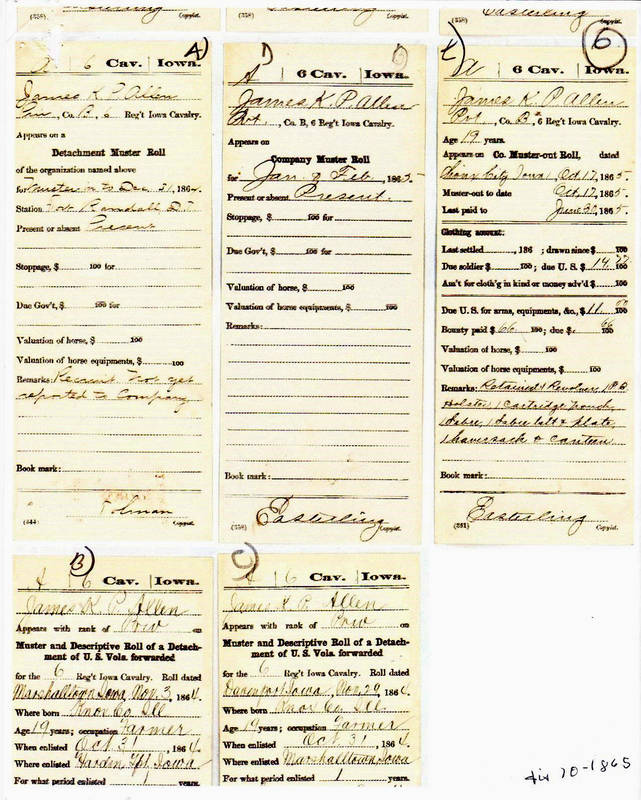 (358) Copyist.
(358)
Easterling
(358) Copyist.
A)
A | 6 Cav. | Iowa.
James K. P. Allen
Priv, Co. B, 6 Reg't Iowa Cavalry.
Appears on a
Detachment Muster Roll
of the organization named above
for Muster in to Dec 31, 1864.
Station Fort Randall, D.T.
Present or absent Present
Stoppage, $ 100 for
Due Gov't, $ 100 for
Valuation of horse, $ 100
Valuation of horse equipments, $ 100
Remarks: Recruit not yet
reported to Company
Book mark:
Tolman
(344) Copyist.
A | 6 Cav. | Iowa.
James K. P. Allen
Pvt., Co. B, 6 Reg't Iowa Cavalry.
Appears on
Company Muster Roll
for Jan & Feb, 1865.
Present or absent Present.
Stoppage, $ 100 for
Due Gov't, $ 100 for
Valuation of horse, $ 100
Valuation of horse equipments, $ 100
Remarks:
Book mark:
Easterling
(358) Copyist.
6
A | 6 Cav. | Iowa.
James K. P. Allen
Pvt, Co. B, 6 Reg't Iowa Cavalry.
Age 19 years.
Appears on Co. Muster-out Roll, dated
Sioux City Iowa, Oct. 17, 1865.
Muster-out to date Oct. 17, 1865.
Last paid to June 30, 1865.
Clothing account:
Last settled , 186 ; drawn since $ 100
Due soldier $ 100; due U. S. $ 14 100
Am't for cloth'g in kind or money adv'd $ 100
Due U. S. for arms, equipments, &c., $ 11 100
Bounty paid $ 66 100; due $ 100
Valuation of horse, $ 100
Valuation of horse equipments, $ 100
Remarks: Retained 1 Revolver,
Holster 1 Cartridge pouch,
1 Sabre, 1 Sabre belt & Plate,
1 haversack & canteen
Book mark:
Easterling
(361) Copyist.
B)
A | 6 Cav. | Iowa.
James K P Allen
Appears with rank of Priv on
Muster and Descriptive Roll of a Detach-
ment of U. S. Vols. forwarded
for the 6 Reg't Iowa Cavalry. Roll dated
Marshalltown Iowa, Nov. 3, 1864.
Where born Knox Co Ill
Age 19 years; occupation Farmer
When enlisted Oct 31, 1864.
Where enlisted Harden Tp Iowa
For what period enlisted 1 years.
C)
A | 6 Cav. | Iowa.
James K P. Allen
Appears with rank of Priv on
Muster and Descriptive Roll of a Detach-
ment of U. S. Vols. forwarded
for the 6 Reg't Iowa Cavalry. Roll dated
Davenport Iowa, Nov. 29, 1864.
Where born Knox Co Ill
Age 19 years; occupation Farmer
When enlisted Oct 31, 1864.
Where enlisted Marshalltown Iowa
For what period enlisted 1 years.
10-1865